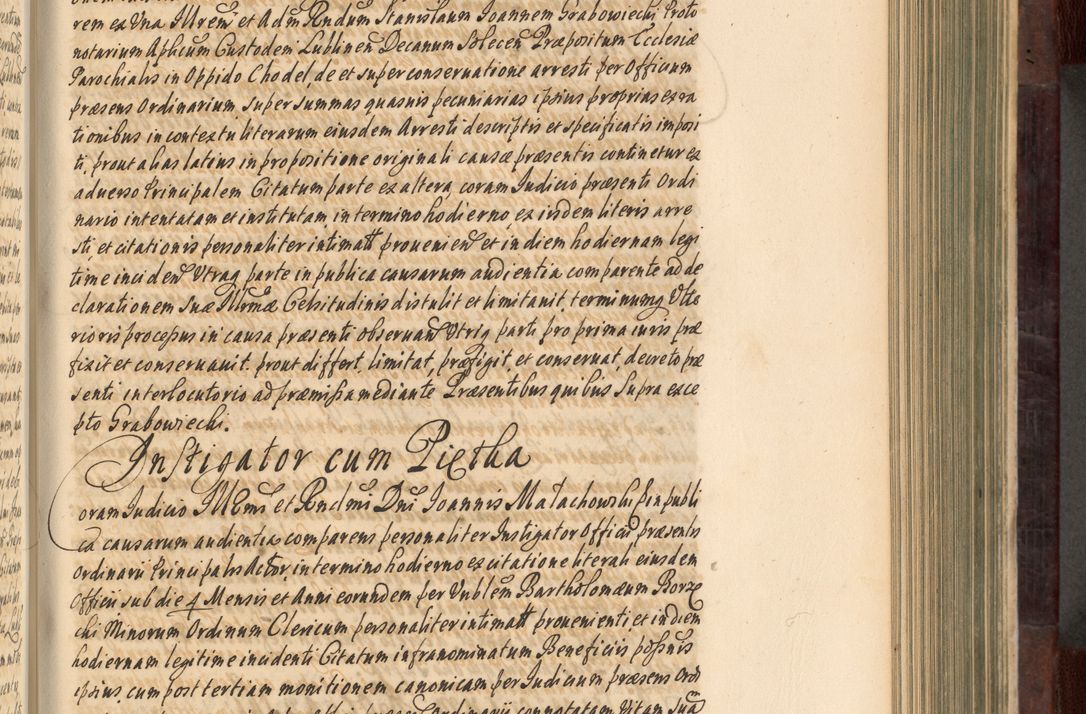 rem ex Una Illrem et Adm Rndum Stanislaum Joannem Grabowiecki Proto
notarium Aplicum Custodem Lublinen Decanum Solecen Præpositum Ecclesiæ
Parochialis in Oppido Chodel, de et super conservatione arresti per Officium
præsens Ordinarium super summas quasvis pecuniarias ipsius proprias ex ra
tionibus in contextu literarum eiusdem Arresti descriptis et specificatis imposi
ti, prout alias latius in propositione originali causæ præsentis continetur ex
adverso Principalem Citatum parte ex altera, coram Judicio præsenti Ordi
nario intentatam et institutam in termino hodierno, ex iisdem literis arre
sti, et citationis personaliter intimatt provenien et in diem hodiernam legi
time inciden Utraq parte in publica causarum audientia comparente ad de
clarationem Suæ Illrmæ Celsitudinis distulit et limitavit, terminumq Ulte
rioris processus in causa præsenti observand Utriq parti pro prima iuris præ
fixit et conservavit. prout differt, limitat, præfigit, et conservat, decreto præ
senti interlocutorio ad præmissa mediante Præsentibus quibus Supra exce
pto Grabowiecki.
Instigator cum Piętka
Coram Judicio Illmi et Rndmi Dni Joannis Małachowski in publi
ca causarum audientia comparens personaliter Instigator Officii præsentis
Ordinarii Principalis Actor, in termino hodierno ex citatione literali eiusdem
Officii sub die 4 Mensis et Anni eorundem per Vnblem Bartholomæum Borzę
cki Minorum Ordinum Clericum personaliter intimatt provenienti et in diem
hodiernam legitime incidenti Citatum infranominatum Beneficiis possnis
ipsius, cum post tertiam monitionem canonicam per Judicium præsens Ordi
connotatam Vitam Suã